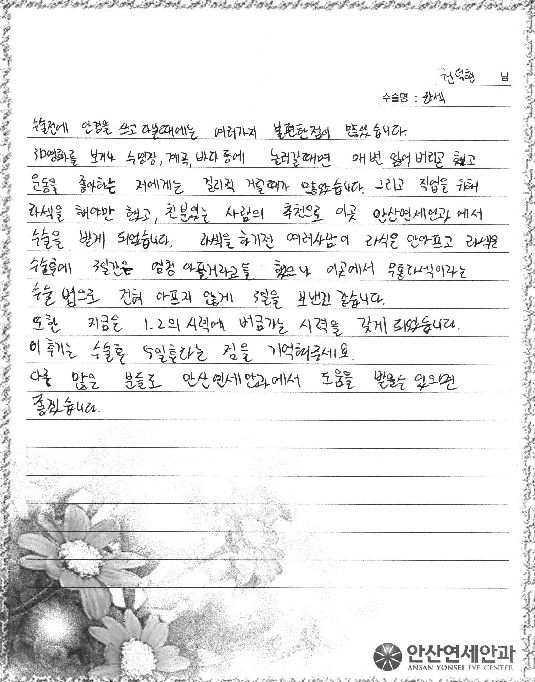 권덕현 님
수술명 : 라섹
수술전에 안경을 쓰고 다닐때에는 여러가지 불편한점이 많았습니다.
3D영화를 보거나 수영장, 계곡, 바다 등에 놀러갈때면 매번 잃어버리곤 했고
운동을 좋아하는 저에게는 걸리적 거릴때가 많았습니다. 그리고 직업을 위해
라섹을 해야만 했고, 친분있는 사람의 추천으로 이곳 안산연세안과에서
수술을 받게 되었습니다. 라섹을 하기전 여러사람이 라식은 안아프고 라섹은
수술후에 3일간은 엄청 아플거라고들 했으나 이곳에서 무통라식이라는
수술법으로 전혀 아프지 않게 3일을 보낸것 같습니다.
또한 지금은 1.2의 시력에 버금가는 시력을 갖게 되었습니다.
이 후기는 수술후 5일후라는 점을 기억해주세요.
다른 많은 분들도 안산연세안과에서 도움을 받을수 있으면
좋겠습니다.
안산연세안과
ANSAN YONSEI EYE CENTER